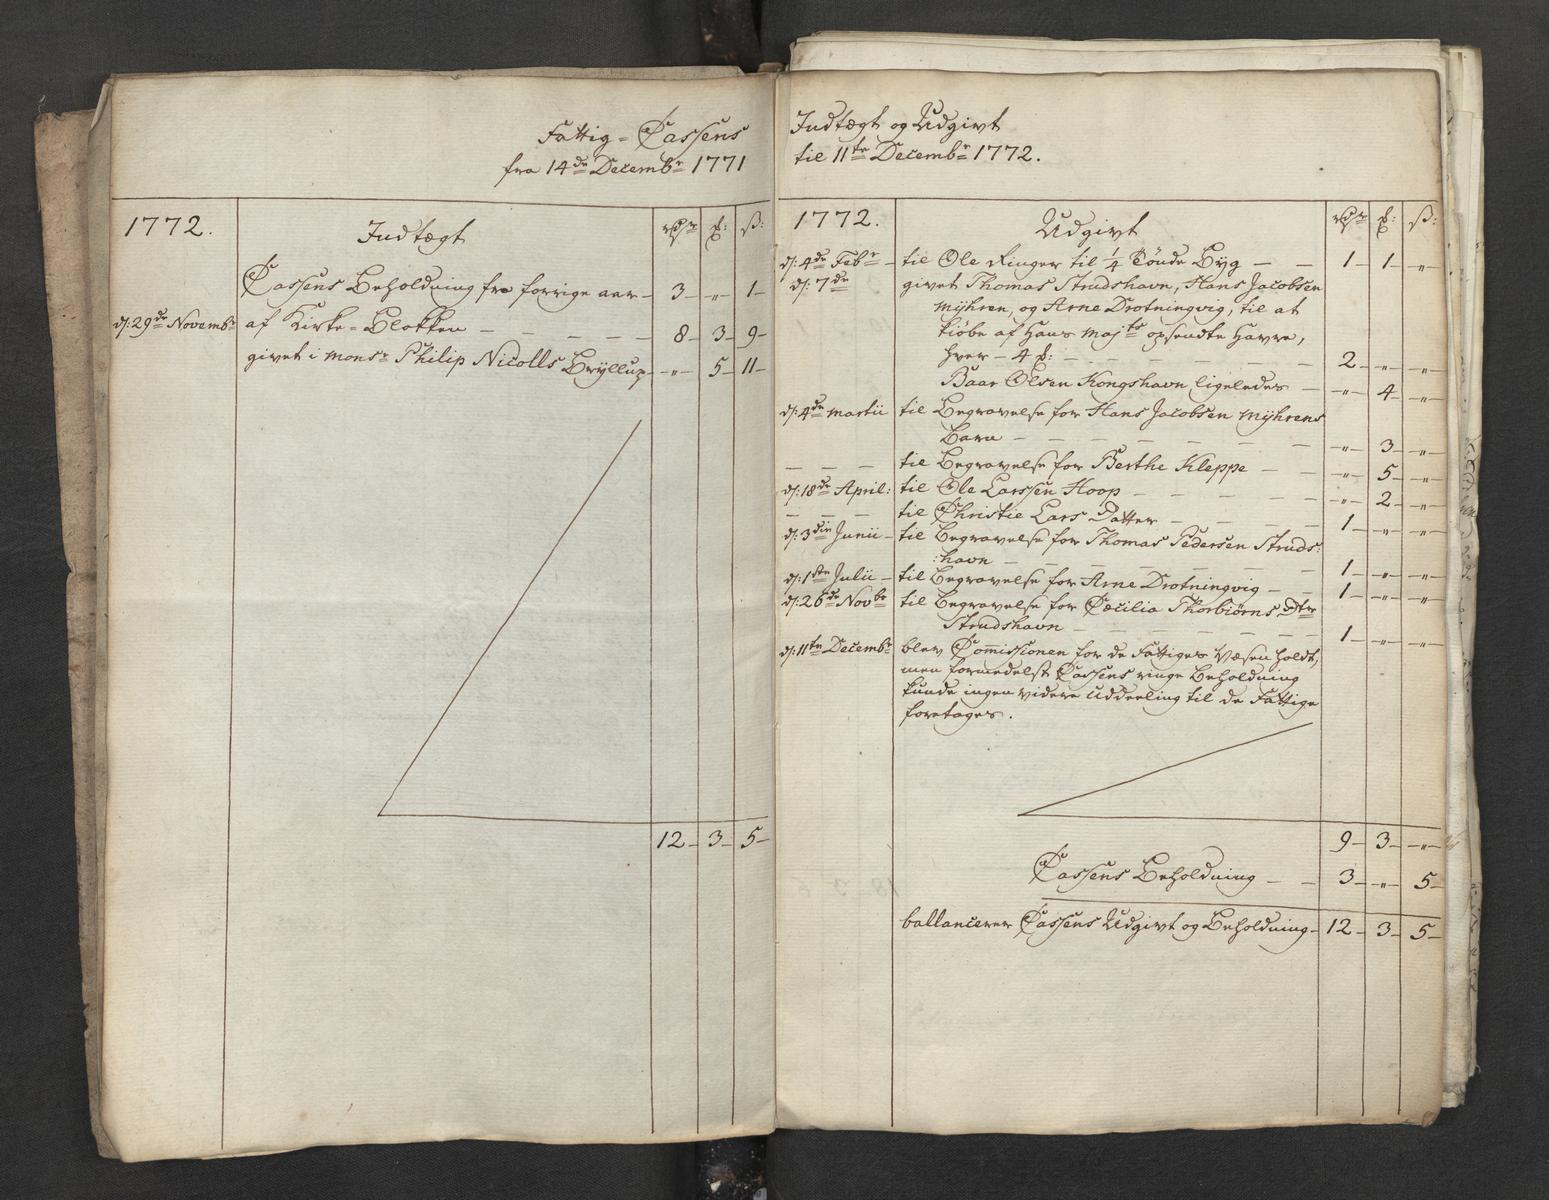 Fattig-Cassens
fra 14de Decembr 1771
1772.
Indtægt
rdr mk: ß:
Cassens Beholdning fra forrige aar - 3 - „ - 1 -
d: 29de Novembr af Kirke-Blokken - - - - 8 - 3 - 9 -
givet i Monsr Philip Nicolls Bryllup - „ - 5 - 11 -
12 - 3 - 5 -
Indtægt og Udgivt
til 11te Decembr 1772.
1772.
Udgivt
rdr mk: ß:
d: 4de Febr - til Ole Ringer til 1/4 Tønde Byg - - 1 - 1 - „ -
d: 7de givet Thomas Strudshavn, Hans Jacobsen
Mÿhren, og Arne Drotningvig, til at
kiøbe af Hans Majts opsendte Havre,
hver - 4 mk: - - - - - - 2 - „ - „ -
Baar Olsen Kongshavn ligeledes - - „ - 4 - „ -
d: 4de Martii til Begravelse for Hans Jacobsen Mÿhrens
Barn - - - - - - - „ - 3 - „ -
- - - til Begravelse for Berthe Kleppe - - „ - 5 - „ -
d: 18de April: til Ole Larssen Hoop - - - - - „ - 2 - „ -
- - - til Christie Lars Datter - - - - 1 - „ - „ -
d: 3die Junii - til Begravelse for Thomas Pedersen Struds:
:havn - - - - - - - 1 - „ - „ -
d: 1ste Julii - til Begravelse for Arne Drotningvig - - 1 - „ - „ -
d: 26de Novbr til Begravelse for Cæcilia Thorbiørns dtr
Strudshavn - - - - - - 1 - „ - „ -
d: 11te Decembr blev Comissionen for de Fattiges Væsen holdt,
men formedelst Cassens ringe Beholdning
kunde ingen videre uddeeling til de Fattige
foretages.
9 - 3 - „ -
Cassens Beholdning - - 3 - „ - 5 -
ballancerer Cassens Udgivt og Beholdning - 12 - 3 - 5 -